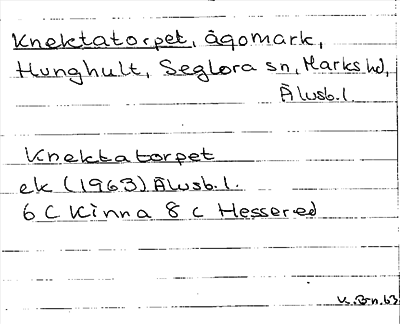 Knektatorpet, ägomark,
Hunghult, Seglora sn, Marks hd,
Älvsb. l.
Knektatorpet
ek (1963) Älvsb. l.
6 C Kinna 8 c Hessered
K. Bn. 63